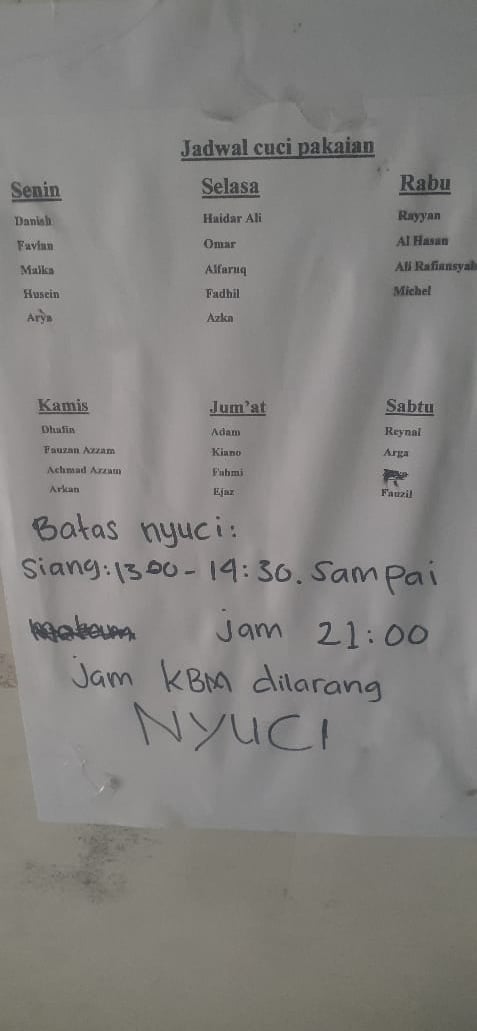 Jadwal cuci pakaian
Senin Selasa Rabu
Danish Haidar Ali Rayyan
Favian Omar Al Hasan
Malka Alfaruq Ali Rafiansyah
Husein Fadhil Michel
Arya Azka
Kamis Jum'at Sabtu
Dhafin Adam Reynal
Fauzan Azzam Kiano Arga
Achmad Azzam Fahmi
Arkan Ejaz Fauzil
Batas nyuci:
Siang: 13.00 - 14:30. Sampai
jam 21:00
Jam KBM dilarang
NYUCI